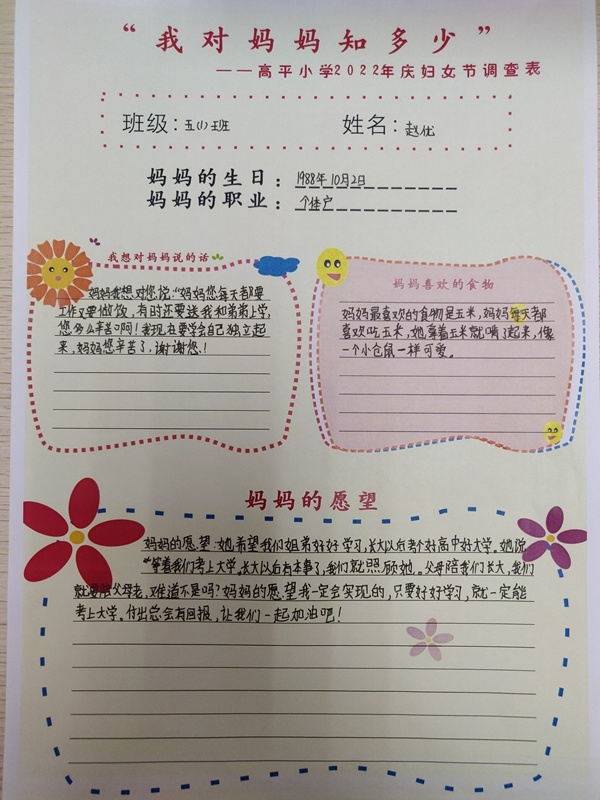 “我对妈妈知多少”
——高平小学2022年庆妇女节调查表
班级：五(1)班 姓名：赵优
妈妈的生日：1988年10月2日
妈妈的职业：个体户
我想对妈妈说的话
妈妈我想对您说：“妈妈您每天都要
工作又要做饭，有时还要送我和弟弟上学，
您多么辛苦啊！我现在要学会自己独立起
来，妈妈您辛苦了，谢谢您！
妈妈喜欢的食物
妈妈最喜欢的食物是玉米，妈妈每天都
喜欢吃玉米，她拿着玉米就啃了起来，像
一个小仓鼠一样可爱。
妈妈的愿望
妈妈的愿望：她希望我们姐弟好好学习，长大以后考个好高中好大学。她说
“等着我们考上大学。长大以后有本事了，我们就照顾她。父母陪我们长大，我们
就要陪父母老，难道不是吗？妈妈的愿望我一定会实现的，只要好好学习，就一定能
考上大学。付出总会有回报，让我们一起加油吧！